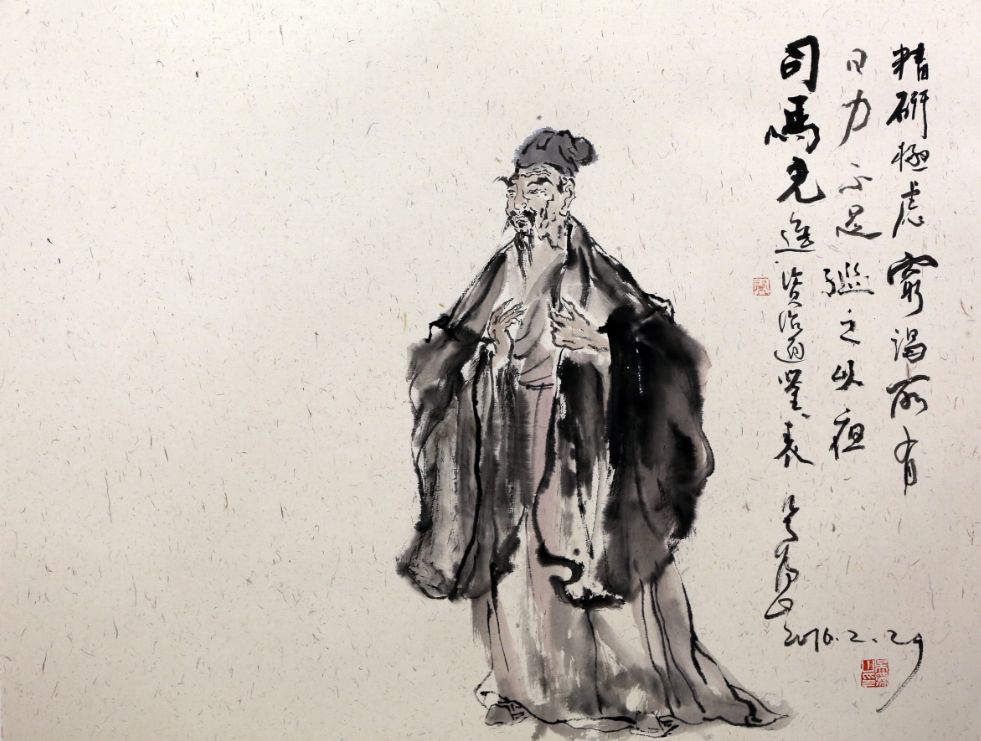 精研極慮窮竭所有
日力不足繼之以夜
司馬光進資治通鑒表
吴为山
2016.2.29